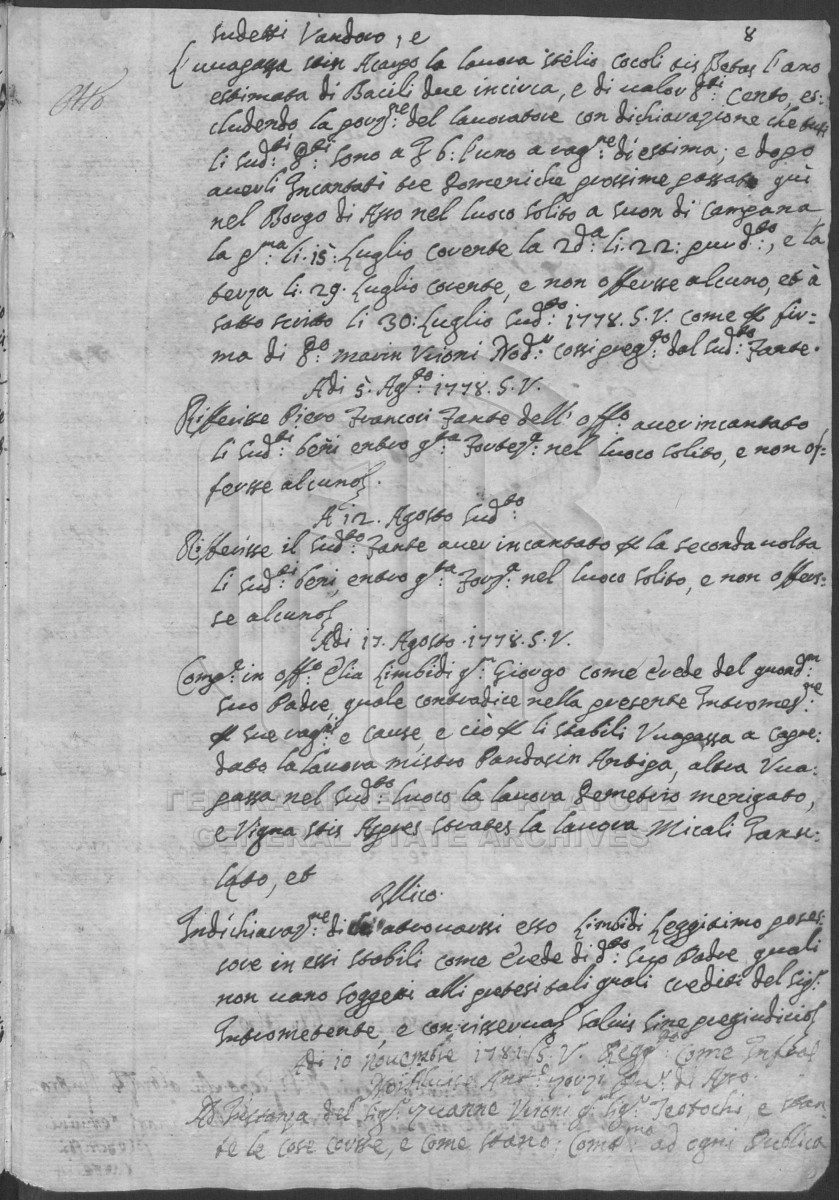 8
sudetti Vandoro, e
L'uvagassa stin Acargo la lavora Stelio Cocoli tis Betas l'ano
Otto
estimata di Bacili due incirca, e di valor Cento, es:
cludendo la porz:ne del lavoratore con dichiarazione che tutti
li sud:ti sono a 6: l'uno a rag:ne di estima; e dopo
averli Incantati tre Domeniche prossime passate quì
nel Borgo di Asso nel luoco solito a suon di Campana
la p:ma li: 15: Luglio corente la 2d:a li: 22: pur d:to, e la
terza li: 29: Luglio corente, e non offersse alcuno, et à
sotto scritto li 30: Luglio sud:to 1778. S.V. come fir-
ma di marin Vrioni Nod:o cossi preg:to dal sud:to Fante.
Adi 5. Ag:to 1778. S.V.
Rifferisse Piero Francori Fante dell' off:o aver incantato
li sud:ti beni entro q:ta Fortez:a nel luoco solito, e non of-
fersse alcuno
A 12. Agosto sud:to
Rifferisse il sud:to Fante aver incantato la seconda volta
li sud:ti beni, entro q:ta Forz:a nel luoco solito, e non offers-
se alcuno
Adi 17. Agosto 1778. S.V.
Comp:e in off:o Elia Limbidi q:m Giorgo come Erede del quond:m
suo Padre quale contradice nella presente Intromes:ne
sue rag:ni e cause, e ciò li stabili Vuagassa a Capre-
dato la lavora mistro Pandasin Artiga, altra Vua-
gassa nel sud:to luoco la lavora Demetrio merigato,
e Vigna stis Ayres strates la lavora Micali
et
Illico.
Indichiaraz:ne di atrovarssi esso Limbidi Leggitimo poses-
sore in essi stabili come Erede di d:to suo Padre quali
non vano soggetti alli pretesi tali quali crediti del Sig:r
Intrometente, e con risserva salvis sine pregiudicio
Adi 10 Novembre 1781. S. V. Regg:to Come
di Asso.
Ad Instanza del Sig:r Zuanne Vrioni q:m Sig:r Teotochi, e stan-
te le cose corsse, e come stano; Com:o ad ogni Publica
ΓΕΝΙΚΑ ΑΡΧΕΙΑ ΤΟΥ ΚΡΑΤΟΥΣ
GENERAL STATE ARCHIVES